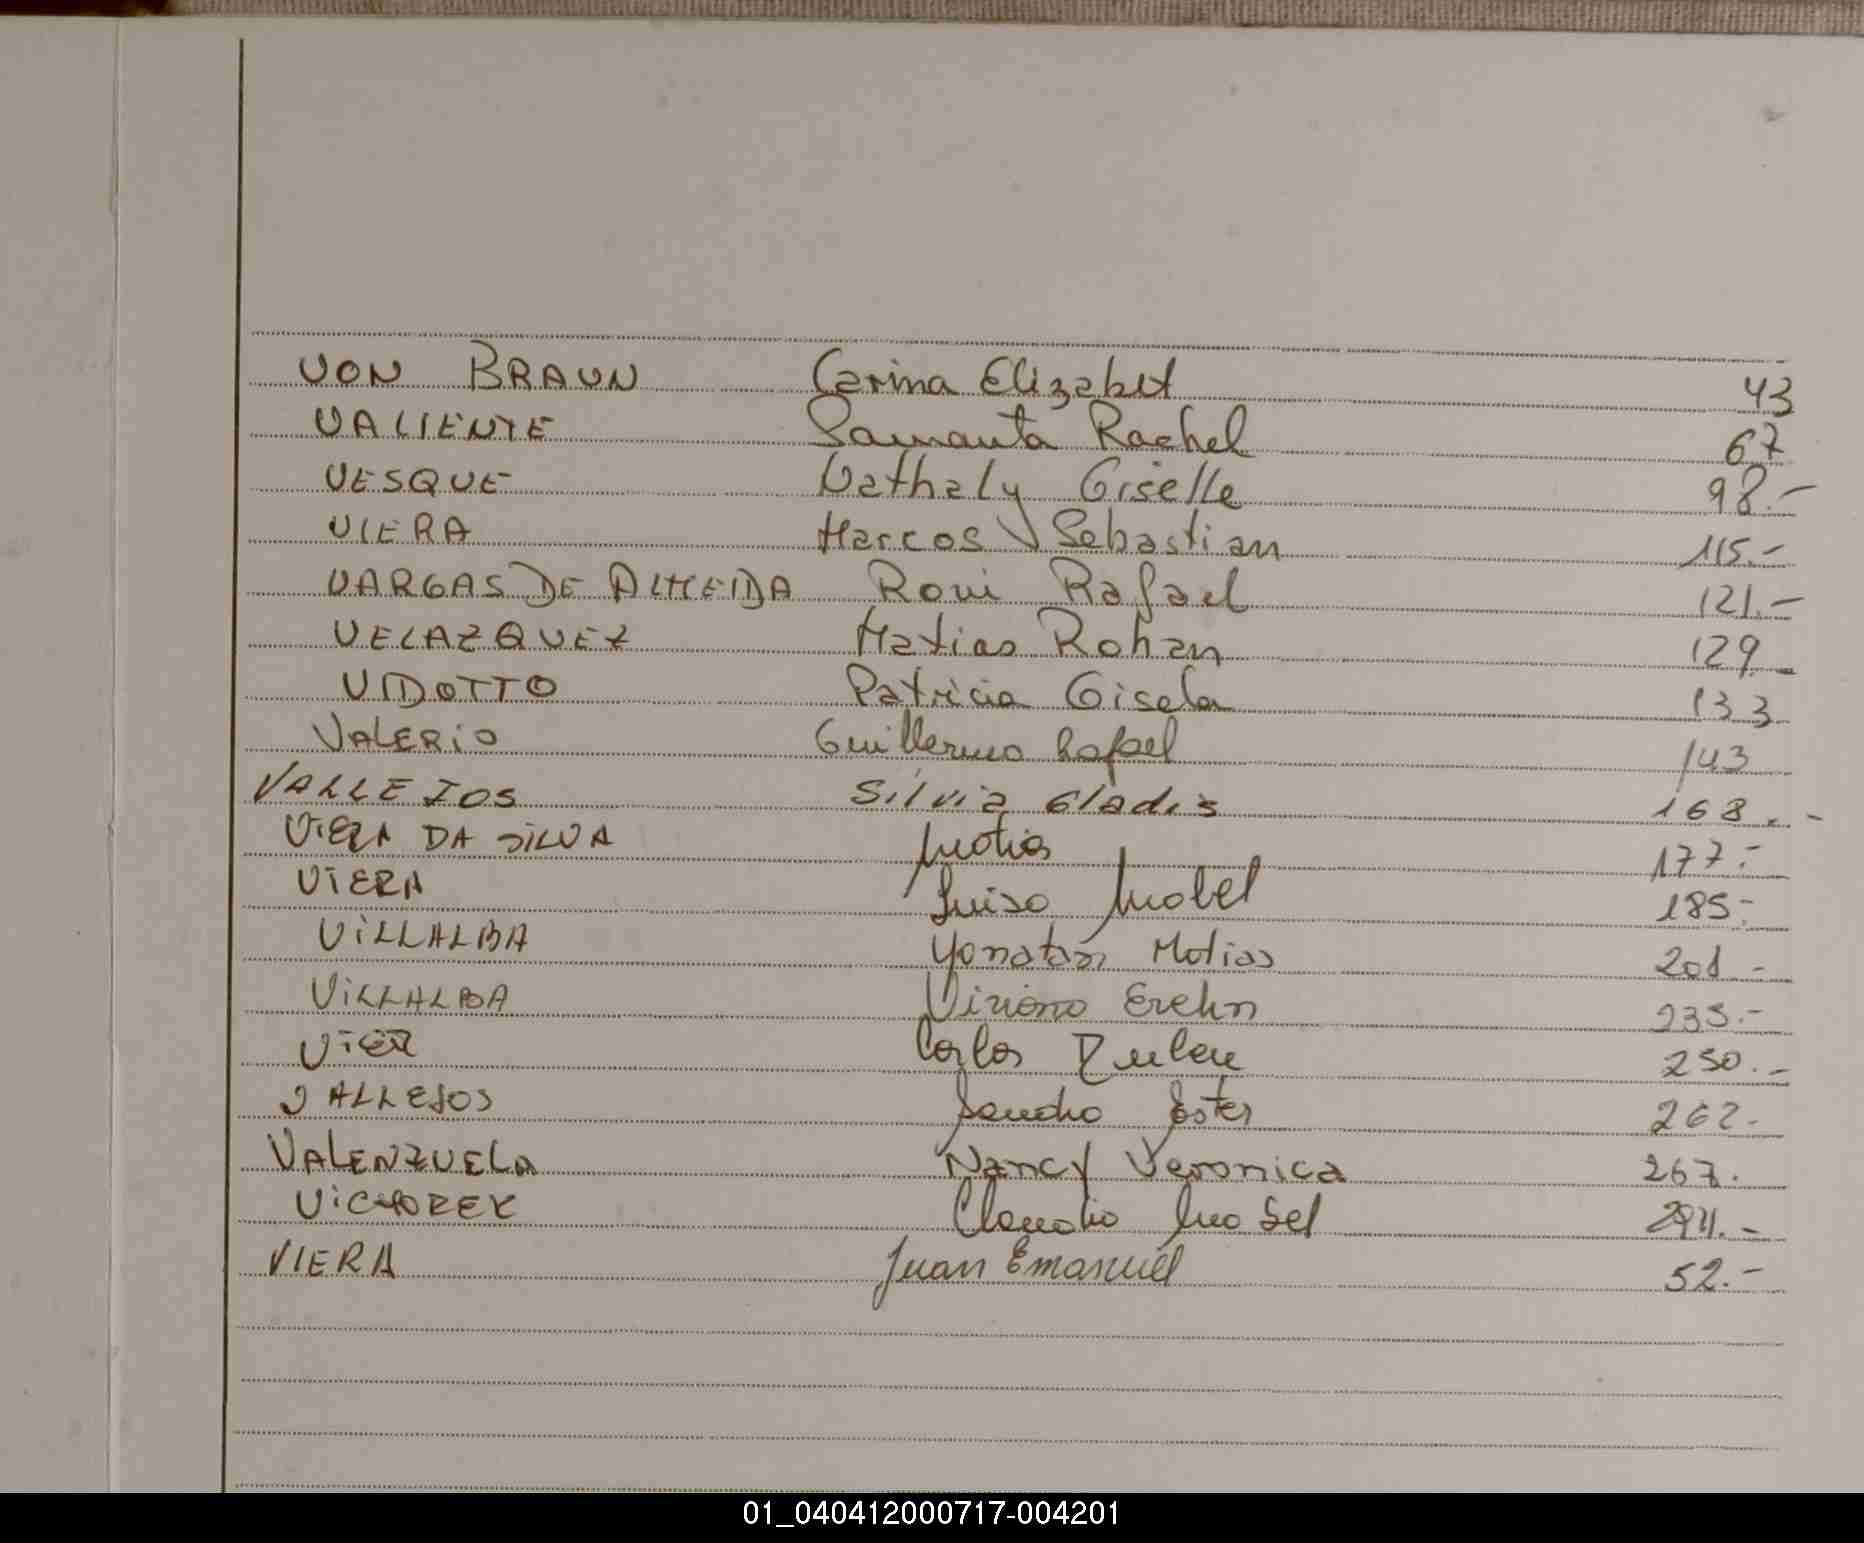 VON BRAUN Carina Elizabet 43
VALIENTE Samanta Rachel 67
VESQUE Nathaly Giselle 98.-
VIERA Marcos Sebastian 115.-
VARGAS DE ALMEIDA Roni Rafael 121.-
VELAZQUEZ Matias Rohan 129
VIDOTTO Patricia Gisela 133
VALERIO Guillermo Rafael 143
VALLEJOS Silvia Gladis 168.-
VIERA DA SILVA Matias 177.-
VIERA Luisa Mabel 185.-
VILLALBA Yonatan Matias 201.-
VILLALBA Viviana Evelin 235.-
VIER Carlos Ruben 250.-
VALLEJOS Sandra Ester 262.-
VALENZUELA Nancy Veronica 267.
VICHOREK Claudia 294.-
VIERA Juan Emanuel 52.-
01_040412000717-004201